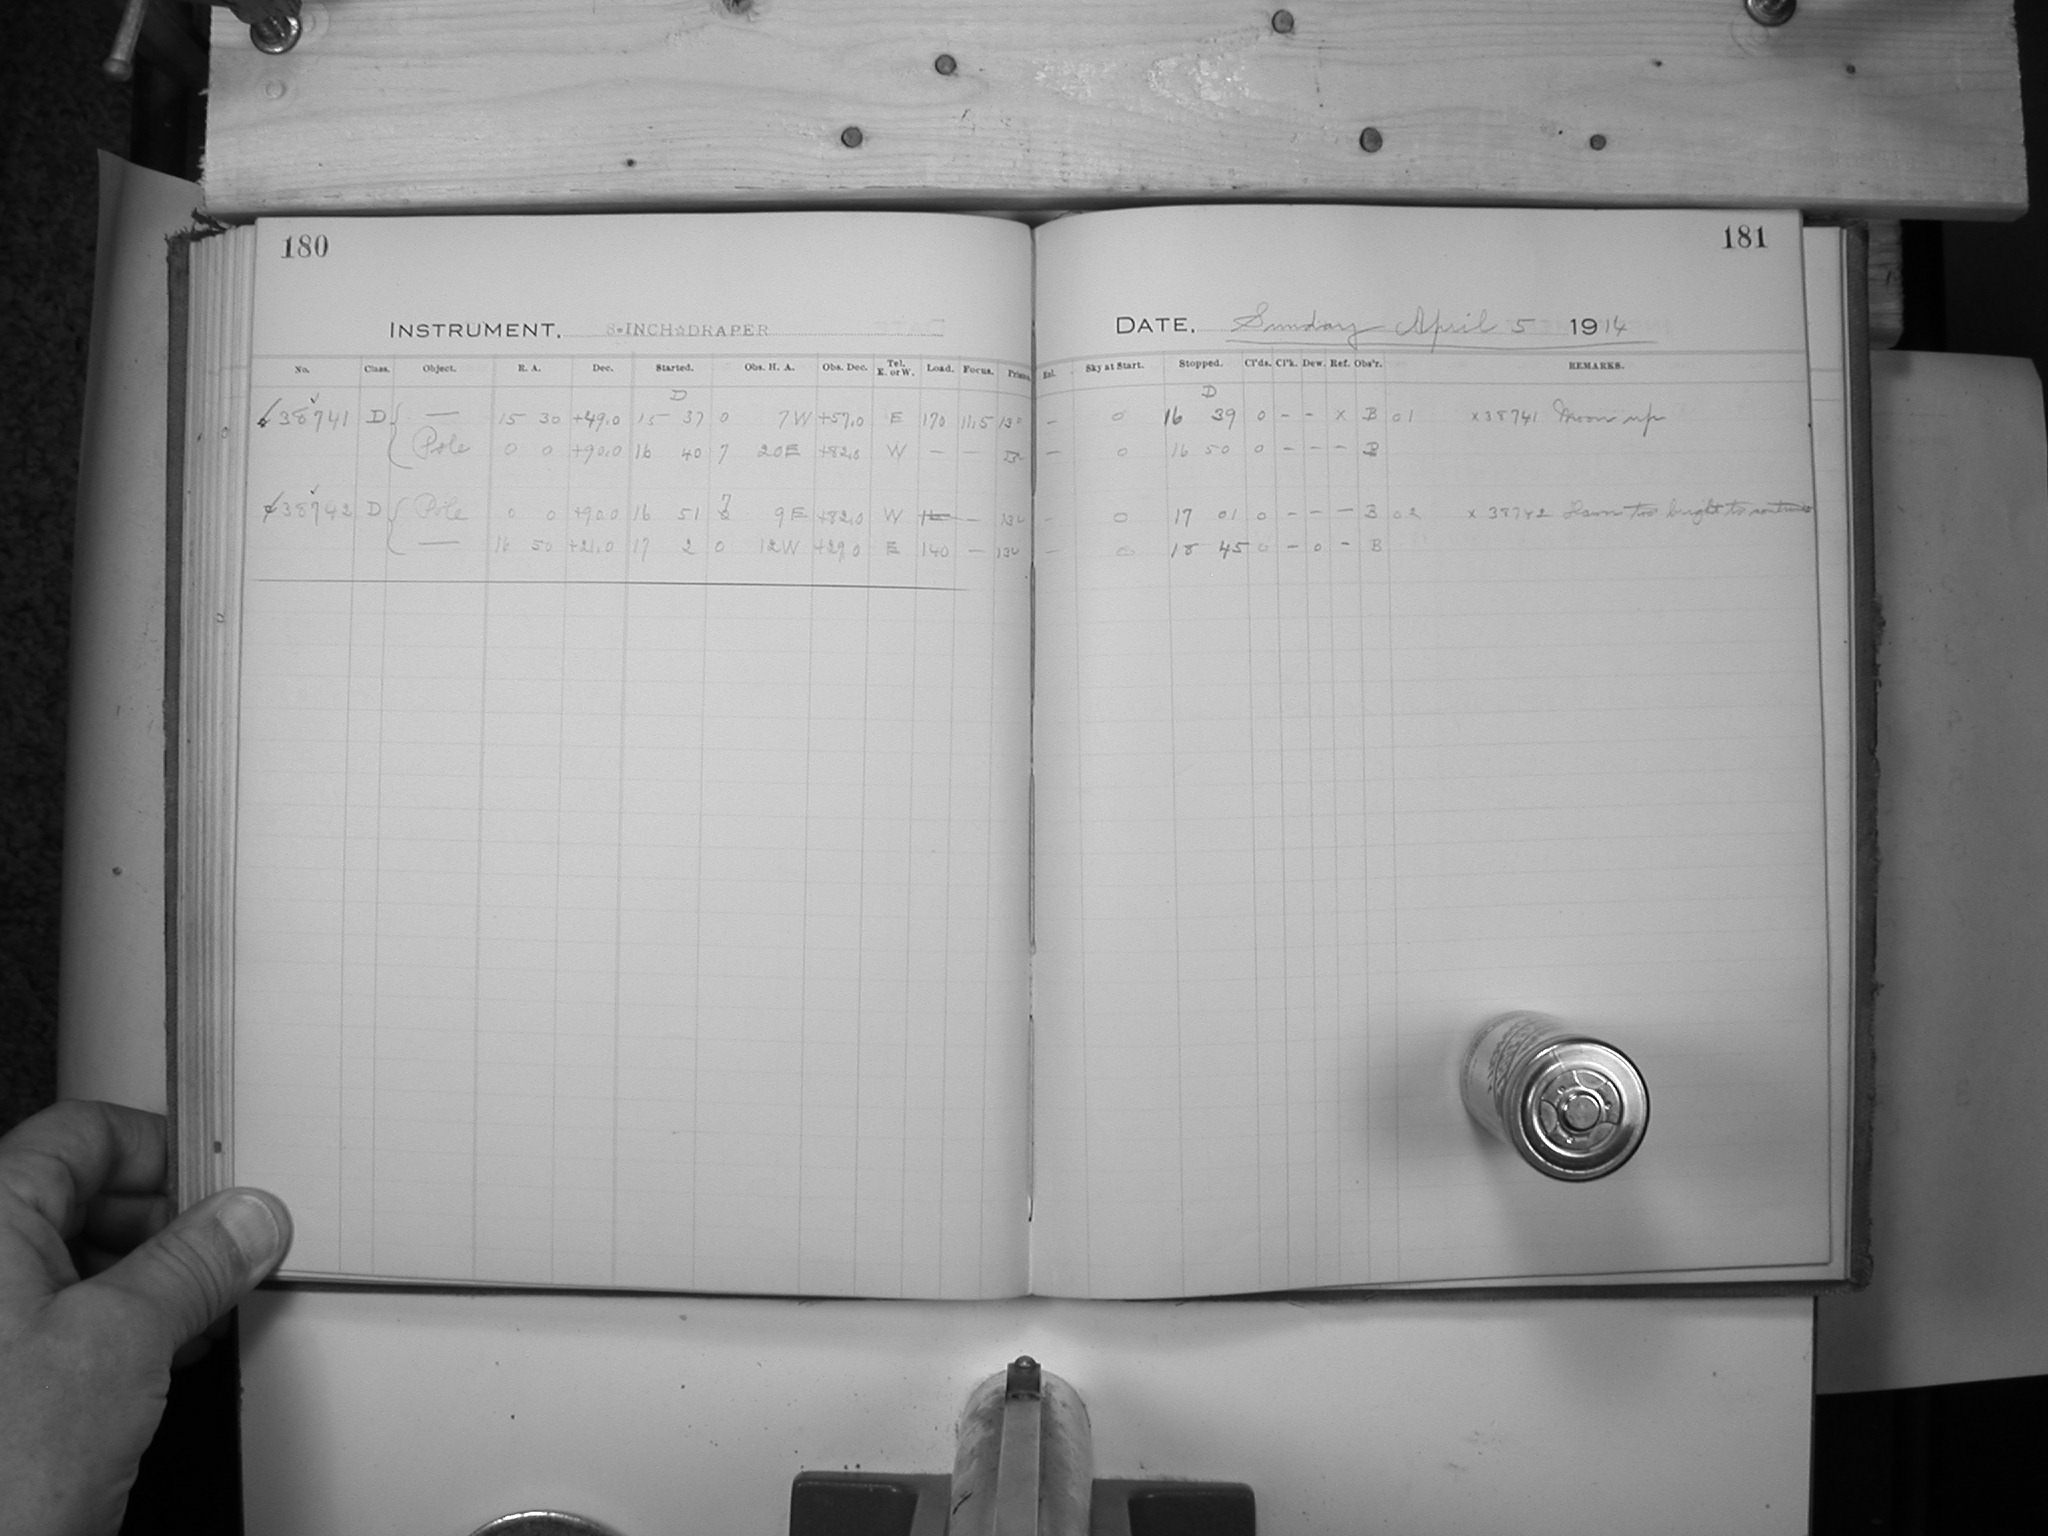 180
INSTRUMENT. 8-INCH DRAPER
No. Class. Object. R. A. Dec. Started. Obs. H. A. Obs. Dec. Tel. E. or W. Load. Focus. Prism.
D
38741 D — 15 30 +49.0 15 37 0 7W +57.0 E 170 11.5
Pole 0 0 +90.0 16 40 7 20E +82.0 W — —
38742 D Pole 0 0 +90.0 16 51 9E +82.0 W —
— 16 50 +21.0 17 2 0 12W +29.0 E 140 —
181
DATE. Sunday April 5 1914
Sky at Start. Stopped. Cl'ds. Cl'k. Dew. Ref. Obs'r. REMARKS.
D
— 0 16 39 0 - - x B 01 x38741 Moon up
— 0 16 50 0 - - - B
— 0 17 01 0 - - - B 02 x 38742 Dawn too bright to
— 0 18 45 0 - 0 - B